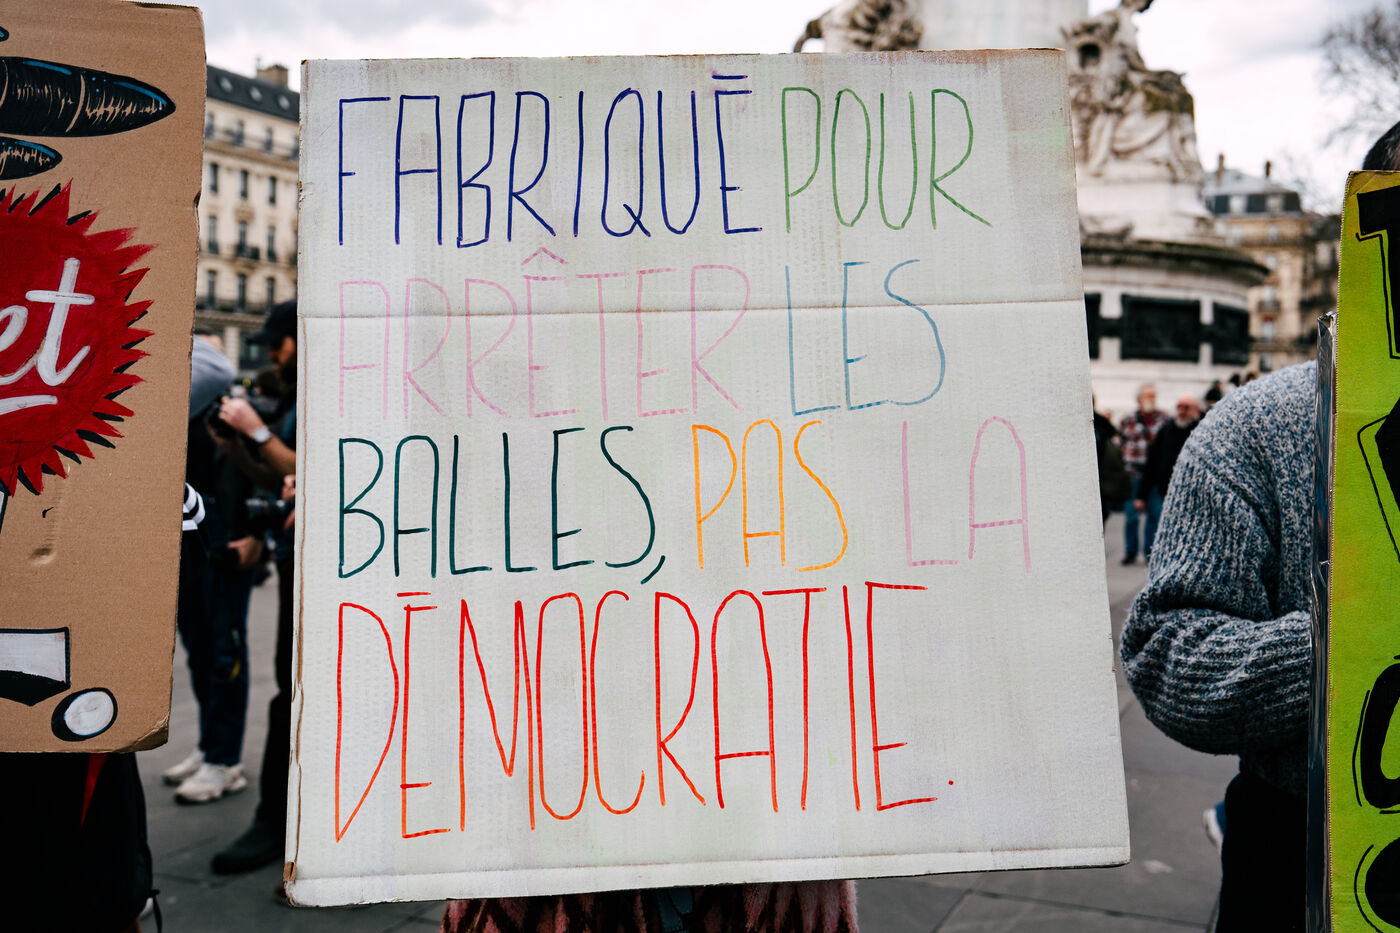 FABRIQUÉ POUR
ARRÊTER LES
BALLES, PAS LA
DÉMOCRATIE.
et